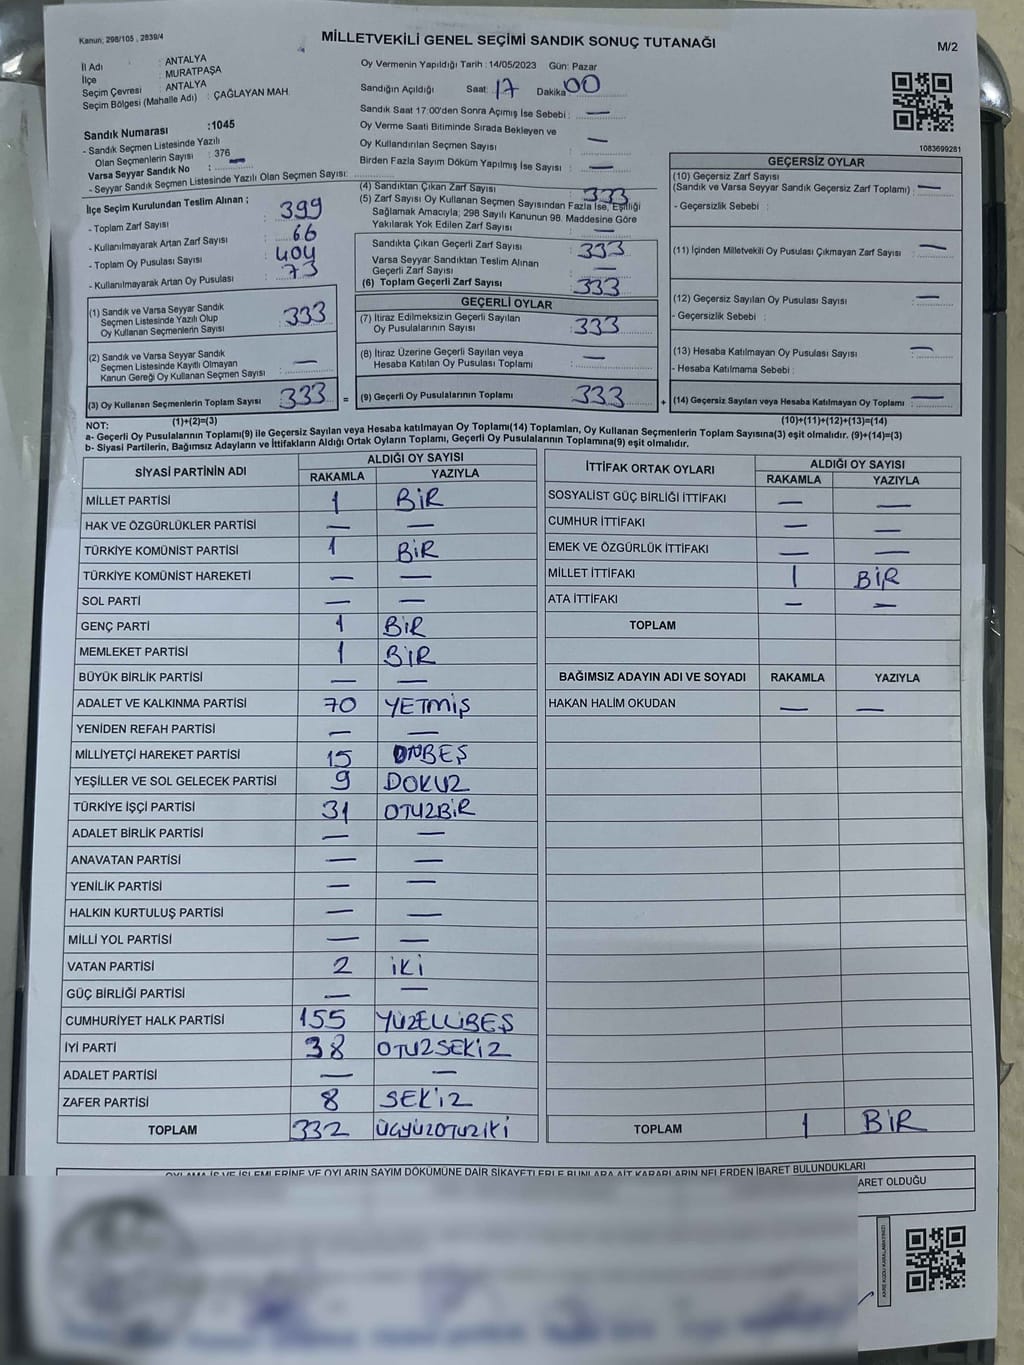 Kanun; 298/105 , 2839/4
MİLLETVEKİLİ GENEL SEÇİMİ SANDIK SONUÇ TUTANAĞI
M/2
İl Adı : ANTALYA
İlçe : MURATPAŞA
Seçim Çevresi : ANTALYA
Seçim Bölgesi (Mahalle Adı) : ÇAĞLAYAN MAH.
Sandık Numarası :1045
- Sandık Seçmen Listesinde Yazılı
Olan Seçmenlerin Sayısı : 376
Varsa Seyyar Sandık No : —
- Seyyar Sandık Seçmen Listesinde Yazılı Olan Seçmen Sayısı:
İlçe Seçim Kurulundan Teslim Alınan ;
- Toplam Zarf Sayısı : 399
- Kullanılmayarak Artan Zarf Sayısı : 66
- Toplam Oy Pusulası Sayısı : 404
- Kullanılmayarak Artan Oy Pusulası : 73
(1) Sandık ve Varsa Seyyar Sandık
Seçmen Listesinde Yazılı Olup
Oy Kullanan Seçmenlerin Sayısı : 333
(2) Sandık ve Varsa Seyyar Sandık
Seçmen Listesinde Kayıtlı Olmayan
Kanun Gereği Oy Kullanan Seçmen Sayısı : —
(3) Oy Kullanan Seçmenlerin Toplam Sayısı : 333 =
Oy Vermenin Yapıldığı Tarih : 14/05/2023 Gün: Pazar
Sandığın Açıldığı Saat: 17 Dakika 00
Sandık Saat 17:00'den Sonra Açımış İse Sebebi : —
Oy Verme Saati Bitiminde Sırada Bekleyen ve
Oy Kullandırılan Seçmen Sayısı : —
Birden Fazla Sayım Döküm Yapılmış İse Sayısı : —
(4) Sandıktan Çıkan Zarf Sayısı : 333
(5) Zarf Sayısı Oy Kullanan Seçmen Sayısından Fazla İse, Eşitliği
Sağlamak Amacıyla; 298 Sayılı Kanunun 98. Maddesine Göre
Yakılarak Yok Edilen Zarf Sayısı : —
Sandıkta Çıkan Geçerli Zarf Sayısı : 333
Varsa Seyyar Sandıktan Teslim Alınan
Geçerli Zarf Sayısı : —
(6) Toplam Geçerli Zarf Sayısı : 333
GEÇERLİ OYLAR
(7) İtiraz Edilmeksizin Geçerli Sayılan
Oy Pusulalarının Sayısı : 333
(8) İtiraz Üzerine Geçerli Sayılan veya
Hesaba Katılan Oy Pusulası Toplamı : —
(9) Geçerli Oy Pusulalarının Toplamı : 333 +
1083699281
GEÇERSİZ OYLAR
(10) Geçersiz Zarf Sayısı
(Sandık ve Varsa Seyyar Sandık Geçersiz Zarf Toplamı) : —
- Geçersizlik Sebebi :
(11) İçinden Milletvekili Oy Pusulası Çıkmayan Zarf Sayısı : —
(12) Geçersiz Sayılan Oy Pusulası Sayısı : —
- Geçersizlik Sebebi :
(13) Hesaba Katılmayan Oy Pusulası Sayısı : —
- Hesaba Katılmama Sebebi :
(14) Geçersiz Sayılan veya Hesaba Katılmayan Oy Toplamı : —
NOT: (1)+(2)=(3) (10)+(11)+(12)+(13)=(14)
a- Geçerli Oy Pusulalarının Toplamı(9) ile Geçersiz Sayılan veya Hesaba katılmayan Oy Toplamı(14) Toplamları, Oy Kullanan Seçmenlerin Toplam Sayısına(3) eşit olmalıdır. (9)+(14)=(3)
b- Siyasi Partilerin, Bağımsız Adayların ve İttifakların Aldığı Ortak Oyların Toplamı, Geçerli Oy Pusulalarının Toplamına(9) eşit olmalıdır.
SİYASİ PARTİNİN ADI ALDIĞI OY SAYISI
RAKAMLA YAZIYLA
MİLLET PARTİSİ 1 BİR
HAK VE ÖZGÜRLÜKLER PARTİSİ — —
TÜRKİYE KOMÜNİST PARTİSİ 1 BİR
TÜRKİYE KOMÜNİST HAREKETİ — —
SOL PARTİ — —
GENÇ PARTİ 1 BİR
MEMLEKET PARTİSİ 1 BİR
BÜYÜK BİRLİK PARTİSİ — —
ADALET VE KALKINMA PARTİSİ 70 YETMİŞ
YENİDEN REFAH PARTİSİ — —
MİLLİYETÇİ HAREKET PARTİSİ 15 ONBEŞ
YEŞİLLER VE SOL GELECEK PARTİSİ 9 DOKUZ
TÜRKİYE İŞÇİ PARTİSİ 31 OTUZBİR
ADALET BİRLİK PARTİSİ — —
ANAVATAN PARTİSİ — —
YENİLİK PARTİSİ — —
HALKIN KURTULUŞ PARTİSİ — —
MİLLİ YOL PARTİSİ — —
VATAN PARTİSİ 2 İKİ
GÜÇ BİRLİĞİ PARTİSİ — —
CUMHURİYET HALK PARTİSİ 155 YÜZELLİBEŞ
İYİ PARTİ 38 OTUZSEKİZ
ADALET PARTİSİ — —
ZAFER PARTİSİ 8 SEKİZ
TOPLAM 332 ÜÇYÜZOTUZİKİ
İTTİFAK ORTAK OYLARI ALDIĞI OY SAYISI
RAKAMLA YAZIYLA
SOSYALİST GÜÇ BİRLİĞİ İTTİFAKI — —
CUMHUR İTTİFAKI — —
EMEK VE ÖZGÜRLÜK İTTİFAKI — —
MİLLET İTTİFAKI 1 BİR
ATA İTTİFAKI — —
TOPLAM
BAĞIMSIZ ADAYIN ADI VE SOYADI RAKAMLA YAZIYLA
HAKAN HALİM OKUDAN — —
TOPLAM 1 BİR
OYLAMA İŞ VE İŞLEMLERİNE VE OYLARIN SAYIM DÖKÜMÜNE DAİR ŞİKAYETLERLE BUNLARA AİT KARARLARIN NELERDEN İBARET BULUNDUKLARI
ARET OLDUĞU
KARE KODU KARALAMAYINIZ!